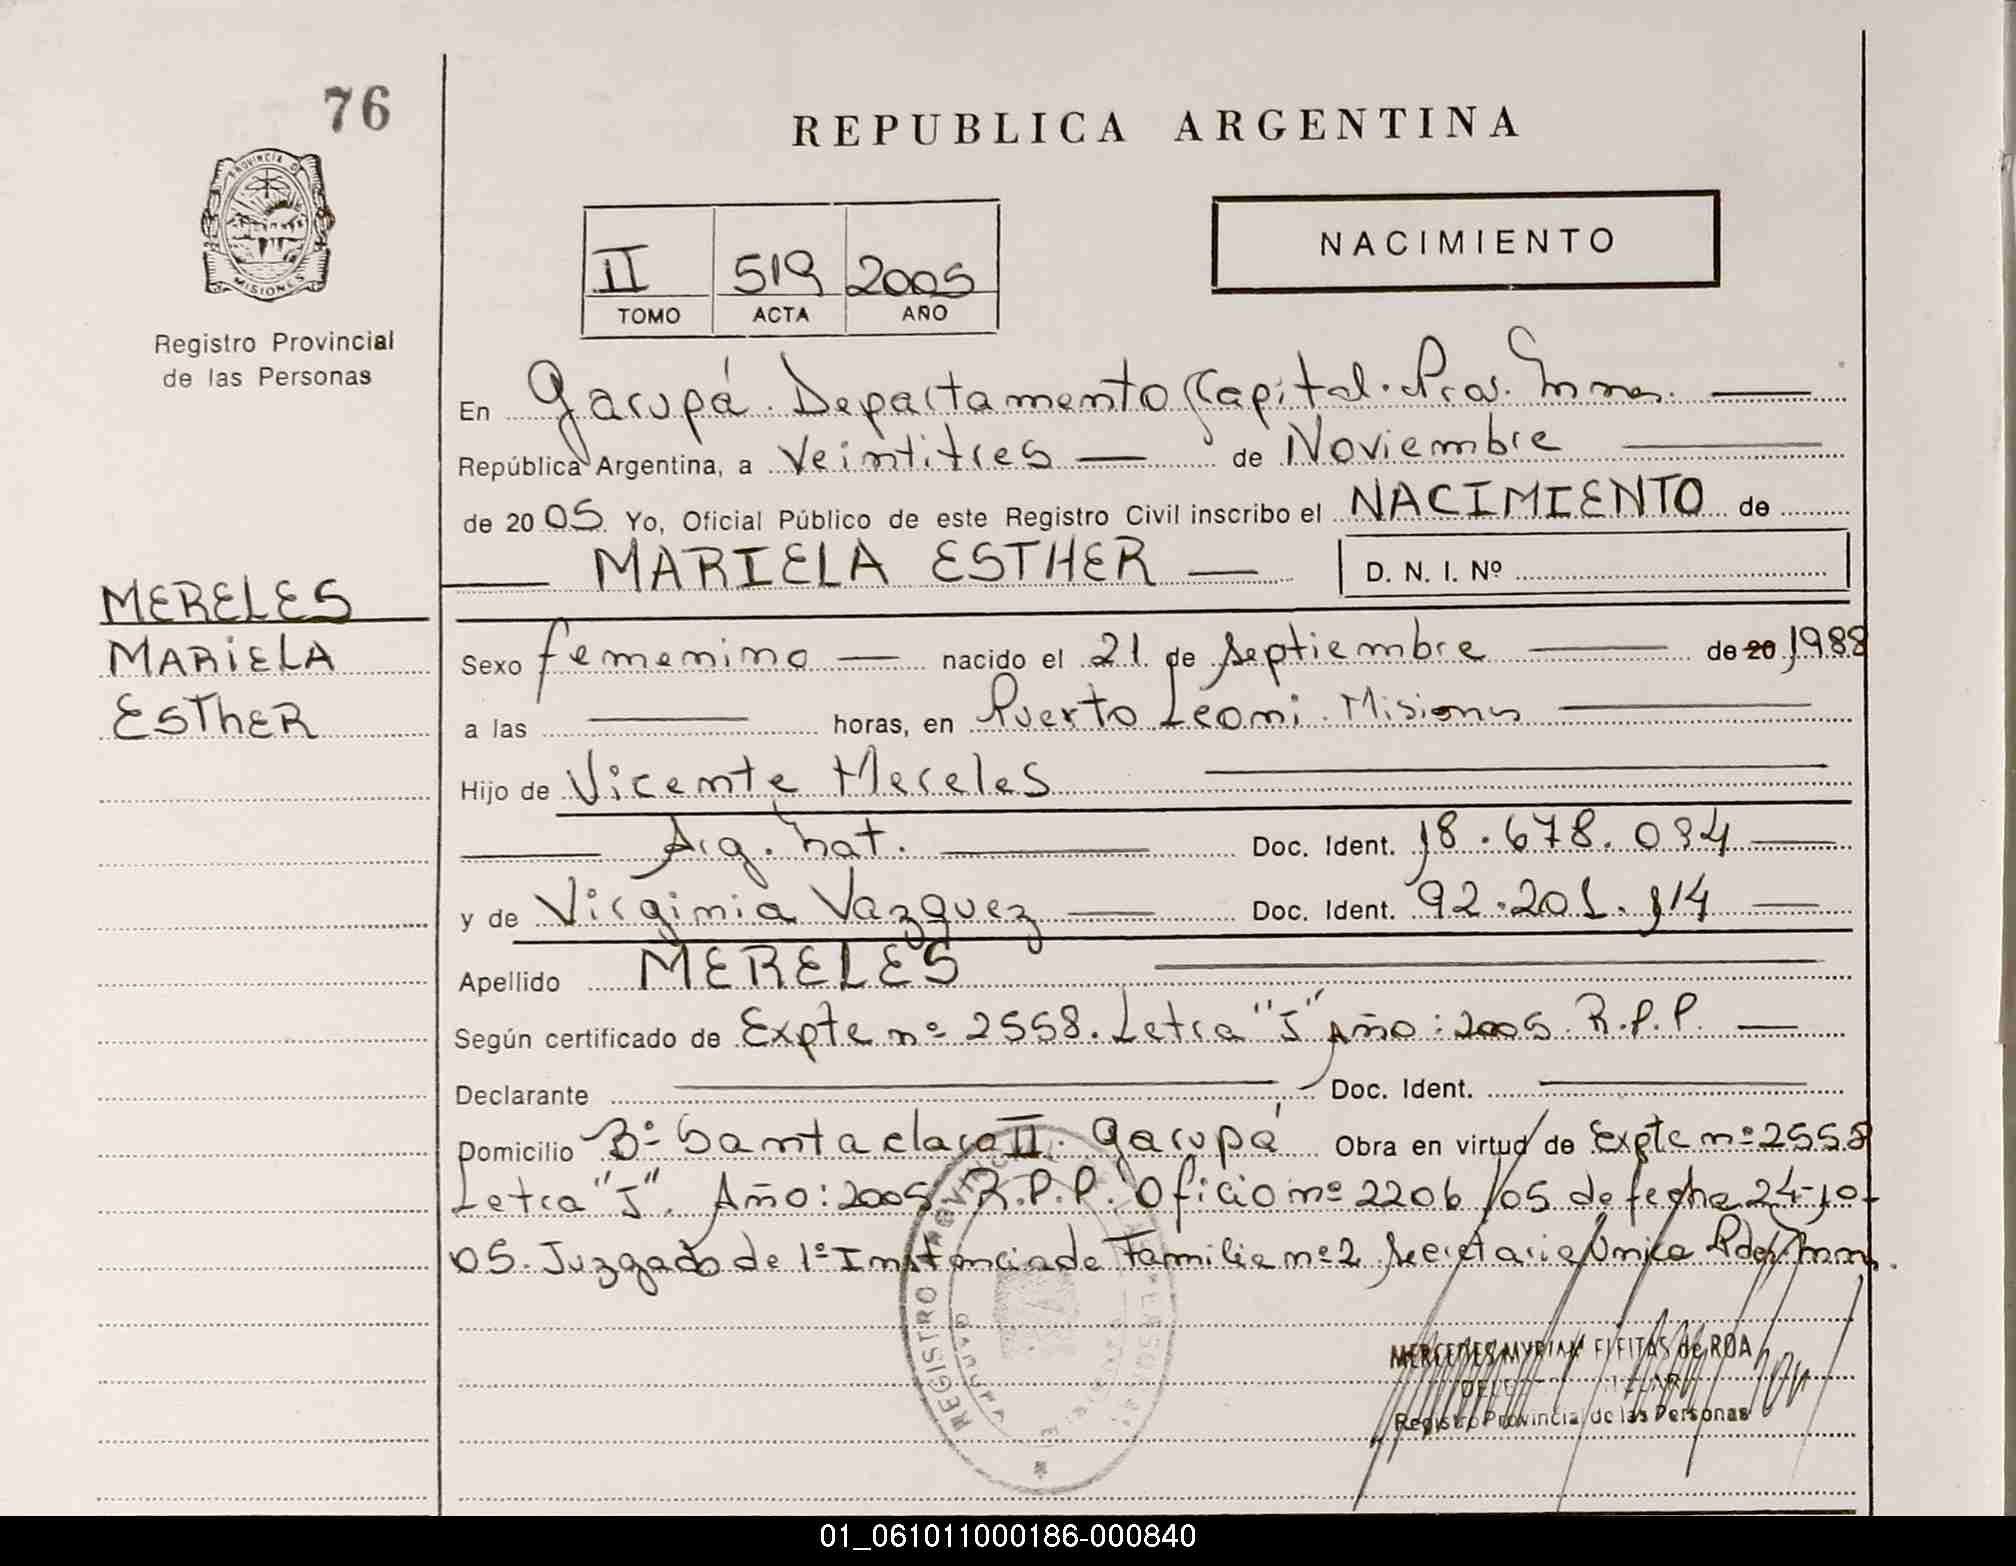 76
REPUBLICA ARGENTINA
PROVINCIA D
MISIONES
Registro Provincial
de las Personas
II 519 2005
TOMO ACTA AÑO
NACIMIENTO
En Garupá. Departamento Capital. Pcia. Mnes.
República Argentina, a Veintitres de Noviembre
de 20 05 Yo, Oficial Público de este Registro Civil inscribo el NACIMIENTO de
MARIELA ESTHER D. N. I. Nº
MERELES
MARIELA
ESTHER
Sexo femenino nacido el 21 de septiembre de 20 1988
a las horas, en Puerto Leoni. Misiones
Hijo de Vicente Mereles
Arg. nat. Doc. Ident. 18.678.034
y de Virginia Vazquez Doc. Ident. 92.201.114
Apellido MERELES
Según certificado de Expte nº 2558. Letra "J" Año: 2005. R.P.P.
Declarante Doc. Ident.
Domicilio Bº Santa clara II. Garupá Obra en virtud de Expte nº 2558
Letra "J". Año: 2005 R.P.P. Oficio nº 2206/05 de fecha 24-10-
05. Juzgado de 1º Instancia de Familia nº 2 Secretaria Unica Pdas. Mnes.
REGISTRO PROVINCIAL DE LAS
GARUPA
MERCEDES MYRIAN FLEITAS de ROA
Registro Provincial de las Personas
01_061011000186-000840